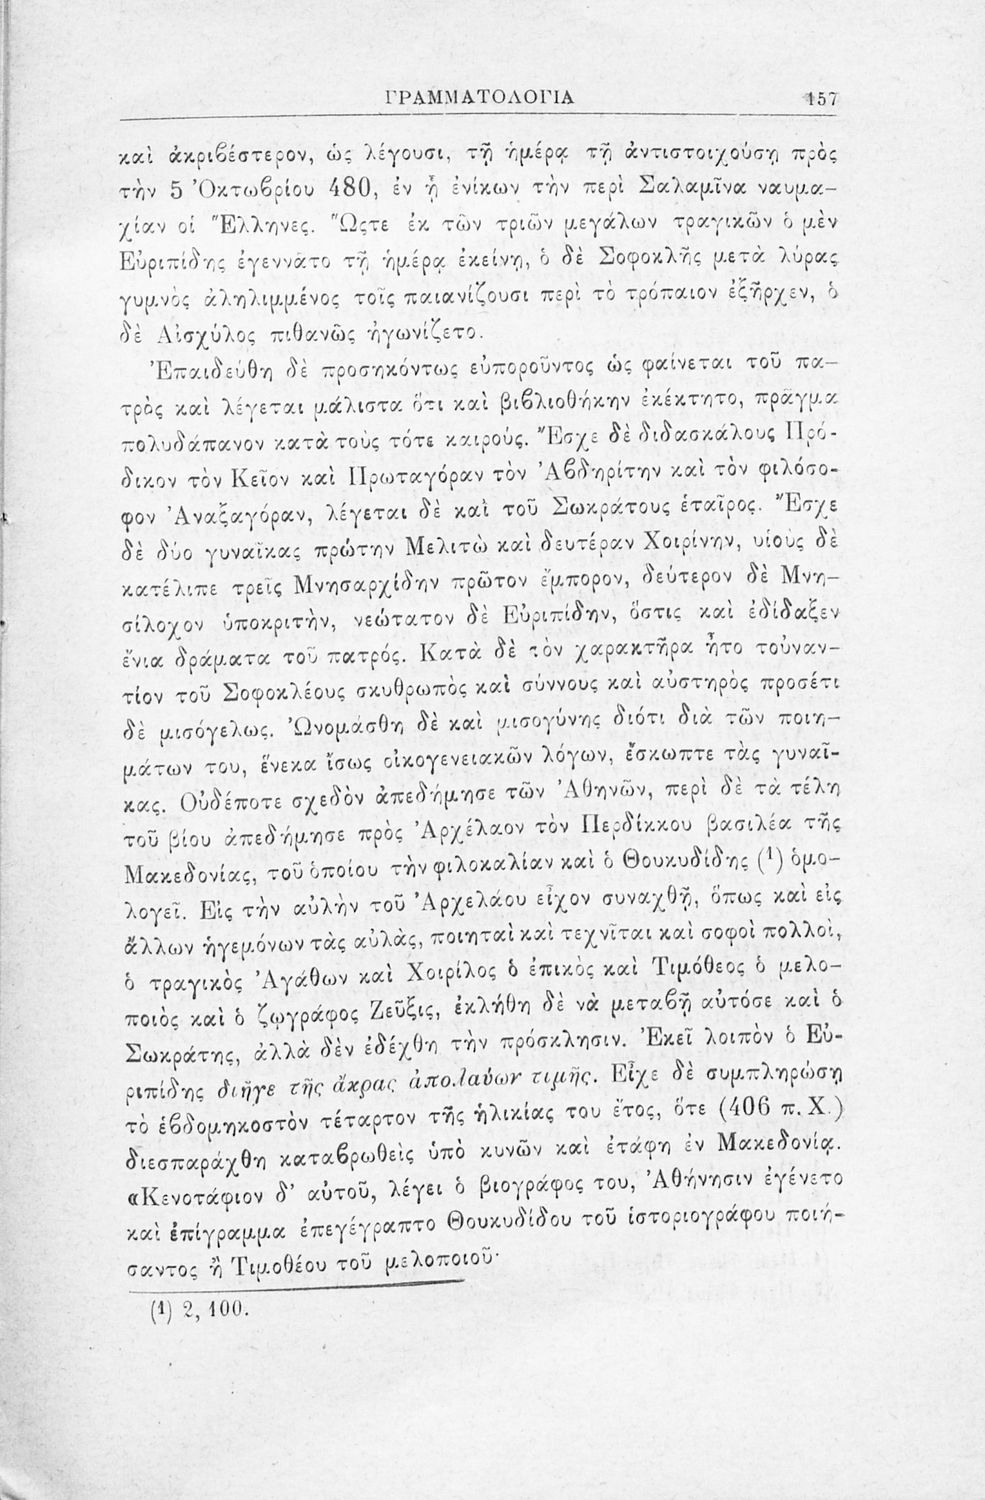 ΓΡΑΜΜΑΤΟΛΟΓΙΑ 157
καὶ ἀκριβέστερον, ὡς λέγουσι, τῇ ἡμέρᾳ τῇ ἀντιστοιχούσῃ πρὸς
τὴν 5 Ὀκτωβρίου 480, ἐν ᾗ ἐνίκων τὴν περὶ Σαλαμῖνα ναυμα-
χίαν οἱ Ἕλληνες. Ὥςτε ἐκ τῶν τριῶν μεγάλων τραγικῶν ὁ μὲν
Εὐριπίδης ἐγεννᾶτο τῇ ἡμέρᾳ ἐκείνῃ, ὁ δὲ Σοφοκλῆς μετὰ λύρας
γυμνὸς ἀληλιμμένος τοῖς παιανίζουσι περὶ τὸ τρόπαιον ἐξῆρχεν, ὁ
δὲ Αἰσχύλος πιθανῶς ἠγωνίζετο.
Ἐπαιδεύθη δὲ προσηκόντως εὐποροῦντος ὡς φαίνεται τοῦ πα-
τρὸς καὶ λέγεται μάλιστα ὅτι καὶ βιβλιοθήκην ἐκέκτητο, πρᾶγμα
πολυδάπανον κατὰ τοὺς τότε καιρούς. Ἔσχε δὲ διδασκάλους Πρό-
δικον τὸν Κεῖον καὶ Πρωταγόραν τὸν Ἀβδηρίτην καὶ τὸν φιλόσο-
φον Ἀναξαγόραν, λέγεται δὲ καὶ τοῦ Σωκράτους ἑταῖρος. Ἔσχε
δὲ δύο γυναῖκας πρώτην Μελιτὼ καὶ δευτέραν Χοιρίνην, υἱοὺς δὲ
κατέλιπε τρεῖς Μνησαρχίδην πρῶτον ἔμπορον, δεύτερον δὲ Μνη-
σίλοχον ὑποκριτὴν, νεώτατον δὲ Εὐριπίδην, ὅστις καὶ ἐδίδαξεν
ἔνια δράματα τοῦ πατρός. Κατὰ δὲ τὸν χαρακτῆρα ἦτο τοὐναν-
τίον τοῦ Σοφοκλέους σκυθρωπὸς καὶ σύννους καὶ αὐστηρὸς προσέτι
δὲ μισόγελως. Ὠνομάσθη δὲ καὶ μισογύνης διότι διὰ τῶν ποιη-
μάτων του, ἕνεκα ἴσως οἰκογενειακῶν λόγων, ἔσκωπτε τὰς γυναῖ-
κας. Οὐδέποτε σχεδὸν ἀπεδήμησε τῶν Ἀθηνῶν, περὶ δὲ τὰ τέλη
τοῦ βίου ἀπεδήμησε πρὸς Ἀρχέλαον τὸν Περδίκκου βασιλέα τῆς
Μακεδονίας, τοῦ ὁποίου τὴν φιλοκαλίαν καὶ ὁ Θουκυδίδης (1) ὁμο-
λογεῖ. Εἰς τὴν αὐλὴν τοῦ Ἀρχελάου εἶχον συναχθῇ, ὅπως καὶ εἰς
ἄλλων ἡγεμόνων τὰς αὐλὰς, ποιηταὶ καὶ τεχνῖται καὶ σοφοὶ πολλοὶ,
ὁ τραγικὸς Ἀγάθων καὶ Χοιρίλος ὁ ἐπικὸς καὶ Τιμόθεος ὁ μελο-
ποιὸς καὶ ὁ ζῳγράφος Ζεῦξις, ἐκλήθη δὲ νὰ μεταβῇ αὐτόσε καὶ ὁ
Σωκράτης, ἀλλὰ δὲν ἐδέχθη τὴν πρόσκλησιν. Ἐκεῖ λοιπὸν ὁ Εὐ-
ριπίδης διῆγε τῆς ἄκρας ἀπολαύων τιμῆς. Εἶχε δὲ συμπληρώσῃ
τὸ ἑβδομηκοστὸν τέταρτον τῆς ἡλικίας του ἔτος, ὅτε (406 π. Χ.)
διεσπαράχθη καταβρωθεὶς ὑπὸ κυνῶν καὶ ἐτάφη ἐν Μακεδονίᾳ.
«Κενοτάφιον δ' αὐτοῦ, λέγει ὁ βιογράφος του, Ἀθήνησιν ἐγένετο
καὶ ἐπίγραμμα ἐπεγέγραπτο Θουκυδίδου τοῦ ἱστοριογράφου ποιή-
σαντος ἢ Τιμοθέου τοῦ μελοποιοῦ·
(1) 2, 100.